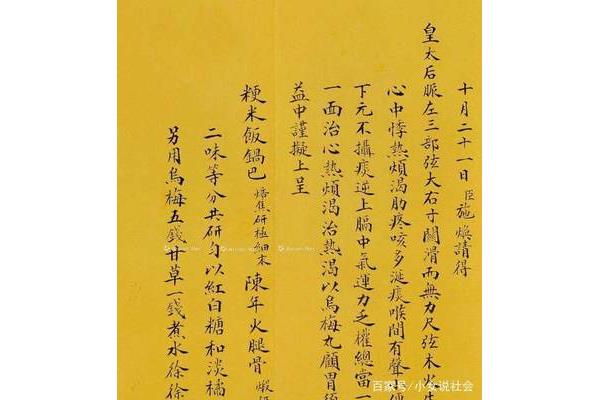 十月二十一日臣施煥請得
皇太后脈左三部弦大右寸關滑而無力尺弦木火
心中悸熱煩渴肋疼咳多涎痰喉間有聲
下元不攝痰逆上膈中氣運力乏權總當一
一面治心熱煩渴治熱渴以烏梅丸顧胃
益中謹擬上呈
粳米飯鍋巴 焙焦研極細末 陳年火腿骨 煅
二味等分共研勻以紅白糖和淡橘
另用烏梅五錢甘草一錢煮水徐徐
百家号/小女说社会